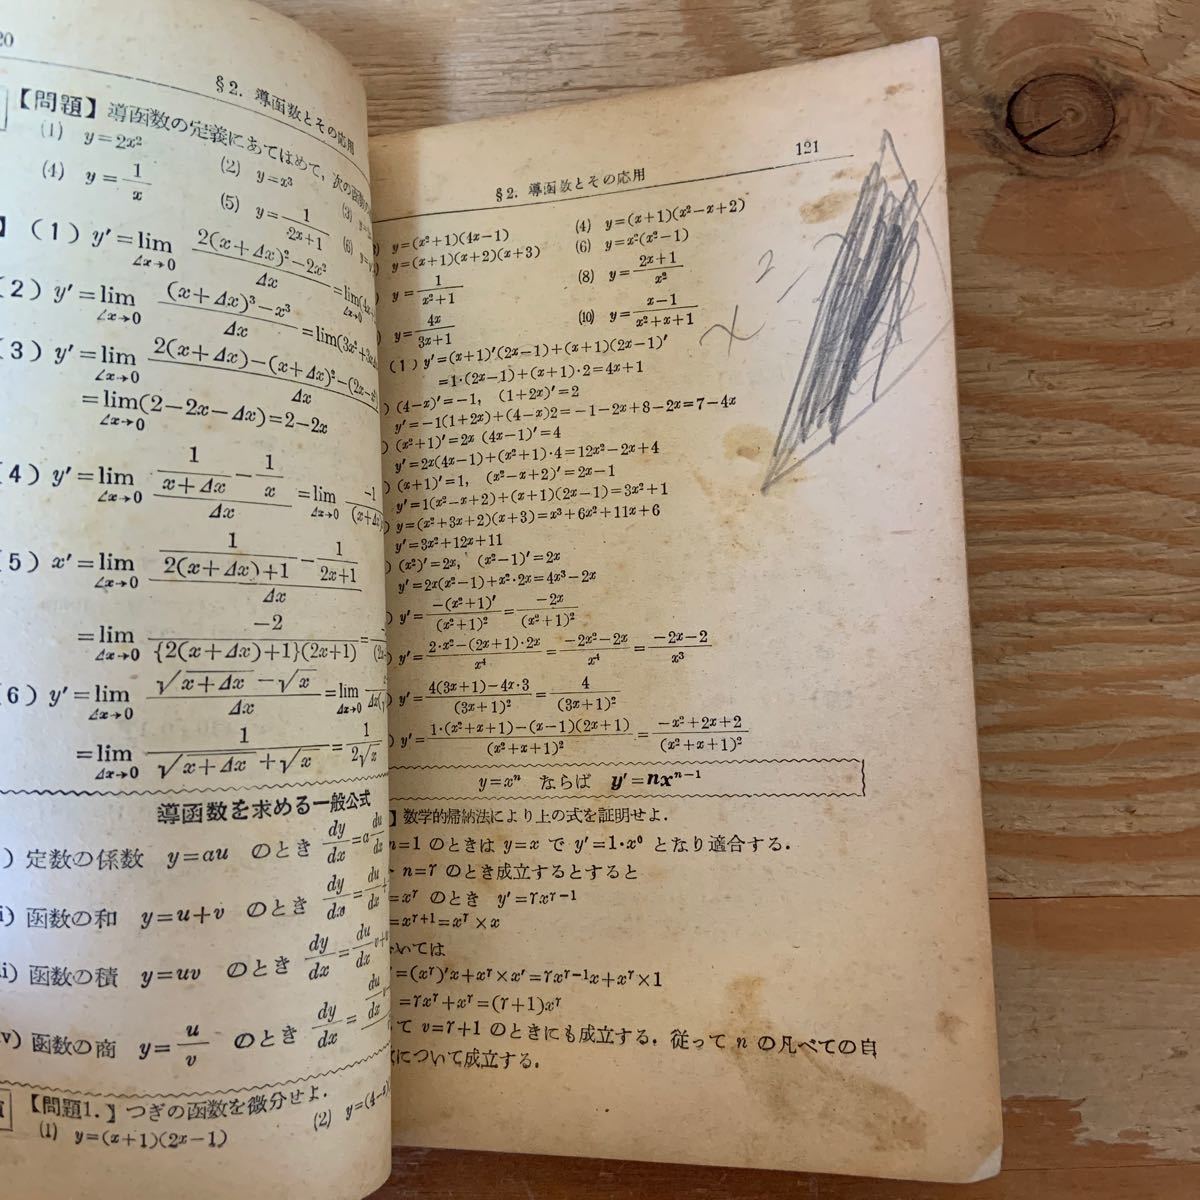 20
§2. 導函数とその応用
【問題】導函数の定義にあてはめて，次の函数の
(1) y=2x² (2) y=x³ (3)
(4) y=1/x (5) y=1/(2x+1) (6)
(1) y′=lim_{Δx→0} {2(x+Δx)²−2x²}/Δx=lim_{Δx→0}(4x+
(2) y′=lim_{Δx→0} {(x+Δx)³−x³}/Δx=lim(3x²+3x
(3) y′=lim_{Δx→0} {2(x+Δx)−(x+Δx)²−(2x−x²
=lim_{Δx→0}(2−2x−Δx)=2−2x
(4) y′=lim_{Δx→0} {1/(x+Δx)−1/x}/Δx=lim_{Δx→0} −1/(x+Δx)
(5) x′=lim_{Δx→0} {1/(2(x+Δx)+1)−1/(2x+1)}/Δx
=lim_{Δx→0} −2/({2(x+Δx)+1}(2x+1))=
(6) y′=lim_{Δx→0} (√(x+Δx)−√x)/Δx=lim_{Δx→0}
=lim_{Δx→0} 1/(√(x+Δx)+√x)=1/(2√x)
導函数を求める一般公式
) 定数の係数 y=au のとき dy/dx=a du/dx
i) 函数の和 y=u+v のとき dy/dx=du/dx+
ii) 函数の積 y=uv のとき dy/dx=du/dx v+u
v) 函数の商 y=u/v のとき dy/dx=
【問題1.】つぎの函数を微分せよ．
(1) y=(x+1)(2x−1) (2) y=(4−x)
§2. 導函数とその応用 121
y=(x²+1)(4x−1) (4) y=(x+1)(x²−x+2)
y=(x+1)(x+2)(x+3) (6) y=x²(x²−1)
y=1/(x²+1) (8) y=(2x+1)/x²
y=4x/(3x+1) (10) y=(x−1)/(x²+x+1)
(1) y′=(x+1)′(2x−1)+(x+1)(2x−1)′
=1·(2x−1)+(x+1)·2=4x+1
) (4−x)′=−1, (1+2x)′=2
y′=−1(1+2x)+(4−x)2=−1−2x+8−2x=7−4x
) (x²+1)′=2x (4x−1)′=4
y′=2x(4x−1)+(x²+1)·4=12x²−2x+4
) (x+1)′=1, (x²−x+2)′=2x−1
y′=1(x²−x+2)+(x+1)(2x−1)=3x²+1
) y=(x²+3x+2)(x+3)=x³+6x²+11x+6
y′=3x²+12x+11
) (x²)′=2x, (x²−1)′=2x
y′=2x(x²−1)+x²·2x=4x³−2x
) y′=−(x²+1)′/(x²+1)²=−2x/(x²+1)²
) y′={2·x²−(2x+1)·2x}/x⁴=(−2x²−2x)/x⁴=(−2x−2)/x³
) y′={4(3x+1)−4x·3}/(3x+1)²=4/(3x+1)²
) y′={1·(x²+x+1)−(x−1)(2x+1)}/(x²+x+1)²=(−x²+2x+2)/(x²+x+1)²
y=xⁿ ならば y′=nxⁿ⁻¹
】数学的帰納法により上の式を証明せよ．
n=1 のときは y=x で y′=1·x⁰ となり適合する．
n=r のとき成立するとすると
=xʳ のとき y′=rxʳ⁻¹
=xʳ⁺¹=xʳ×x
いては
=(xʳ)′x+xʳ×x′=rxʳ⁻¹x+xʳ×1
=rxʳ+xʳ=(r+1)xʳ
て v=r+1 のときにも成立する．従って n の凡べての自
について成立する．